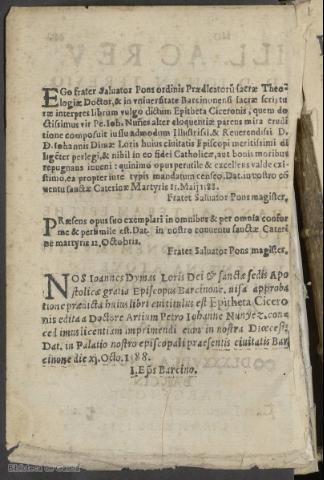 EGo frater Saluator Pons ordinis Prædicatorū sacræ Theo-
logiæ Doctor, & in vniuersitate Barcinonensi sacræ scriptu
ræ interpres librum vulgo dictum Epitheta Ciceronis, quem do
ctissimus vir Pe. Ioh. Nuñes alter eloquentiæ parens mira erudi
tione composuit iussu admodum Illustrisi, & Reuerendisi D.
D. Iohannis Dimas Loris huius ciuitatis Episcopi meritissimi di
ligēter perlegi, & nihil in eo fidei Catholicæ, aut bonis moribus
repugnans inueni: quinimo opus per vtile & excellens valde cæn-
timo, ea propter iure typis mandatum censeo. Dat. in nostro cō
uentu sanctæ Caterinæ Martyris 15. Maij 188.
Frater Saluator Pons magister.
PRæsens opus suo exemplari in omnibus & per omnia confor
me & per simile est. Dat. in nostro conuentu sanctæ Cateri
næ martyris 12. Octobris.
Frater Saluator Pons magister.
NOS Ioannes Dymas Loris Dei & sanctæ sedis Apo
stolicæ gratia Episcopus Barcinonæ, visa approba
tione prædicta huius libri cui titulus est Epitheta Cicero
nis edita a Doctore Artium Petro Iohanne Nunyez. con-
ced imus licentiam imprimendi eum in nostra Diœcesi.
Dat. in Palatio nostro episcopali præsentis ciuitatis Bar
cinone die xj. Octo. 1588.
I. Eps̄ Barcino.